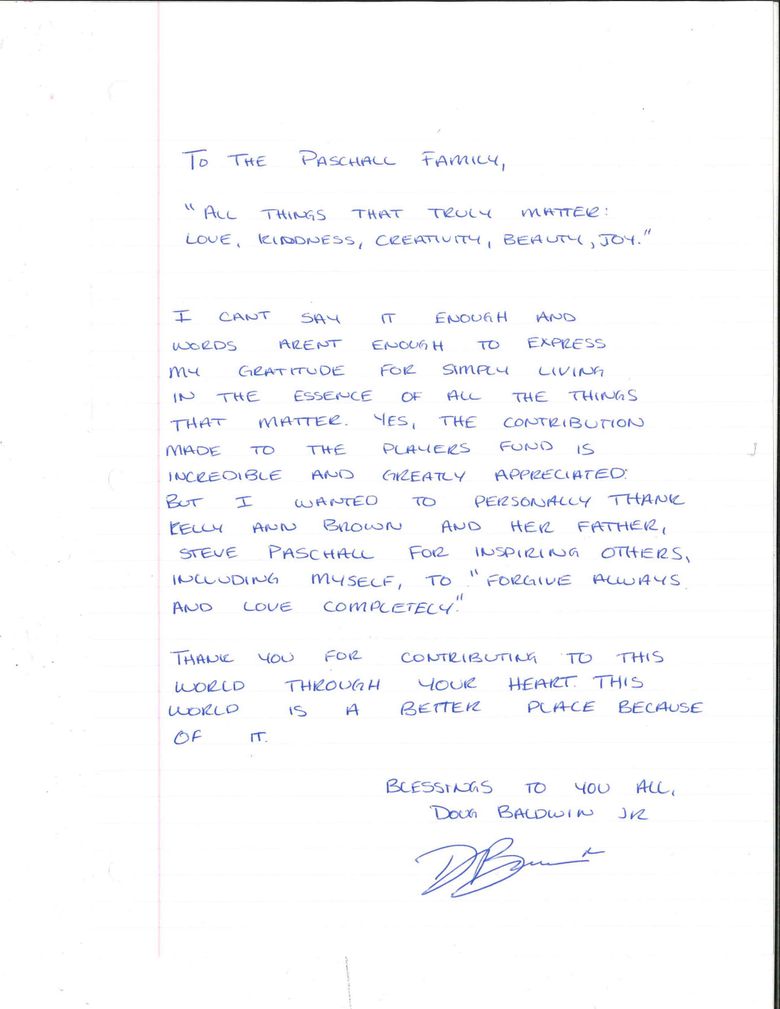 TO THE PASCHALL FAMILY,
"ALL THINGS THAT TRULY MATTER:
LOVE, KINDNESS, CREATIVITY, BEAUTY, JOY."
I CANT SAY IT ENOUGH AND
WORDS ARENT ENOUGH TO EXPRESS
MY GRATITUDE FOR SIMPLY LIVING
IN THE ESSENCE OF ALL THE THINGS
THAT MATTER. YES, THE CONTRIBUTION
MADE TO THE PLAYERS FUND IS
INCREDIBLE AND GREATLY APPRECIATED.
BUT I WANTED TO PERSONALLY THANK
KELLY ANN BROWN AND HER FATHER,
STEVE PASCHALL FOR INSPIRING OTHERS,
INCLUDING MYSELF, TO "FORGIVE ALWAYS
AND LOVE COMPLETELY."
THANK YOU FOR CONTRIBUTING TO THIS
WORLD THROUGH YOUR HEART. THIS
WORLD IS A BETTER PLACE BECAUSE
OF IT.
BLESSINGS TO YOU ALL,
DOUG BALDWIN JR